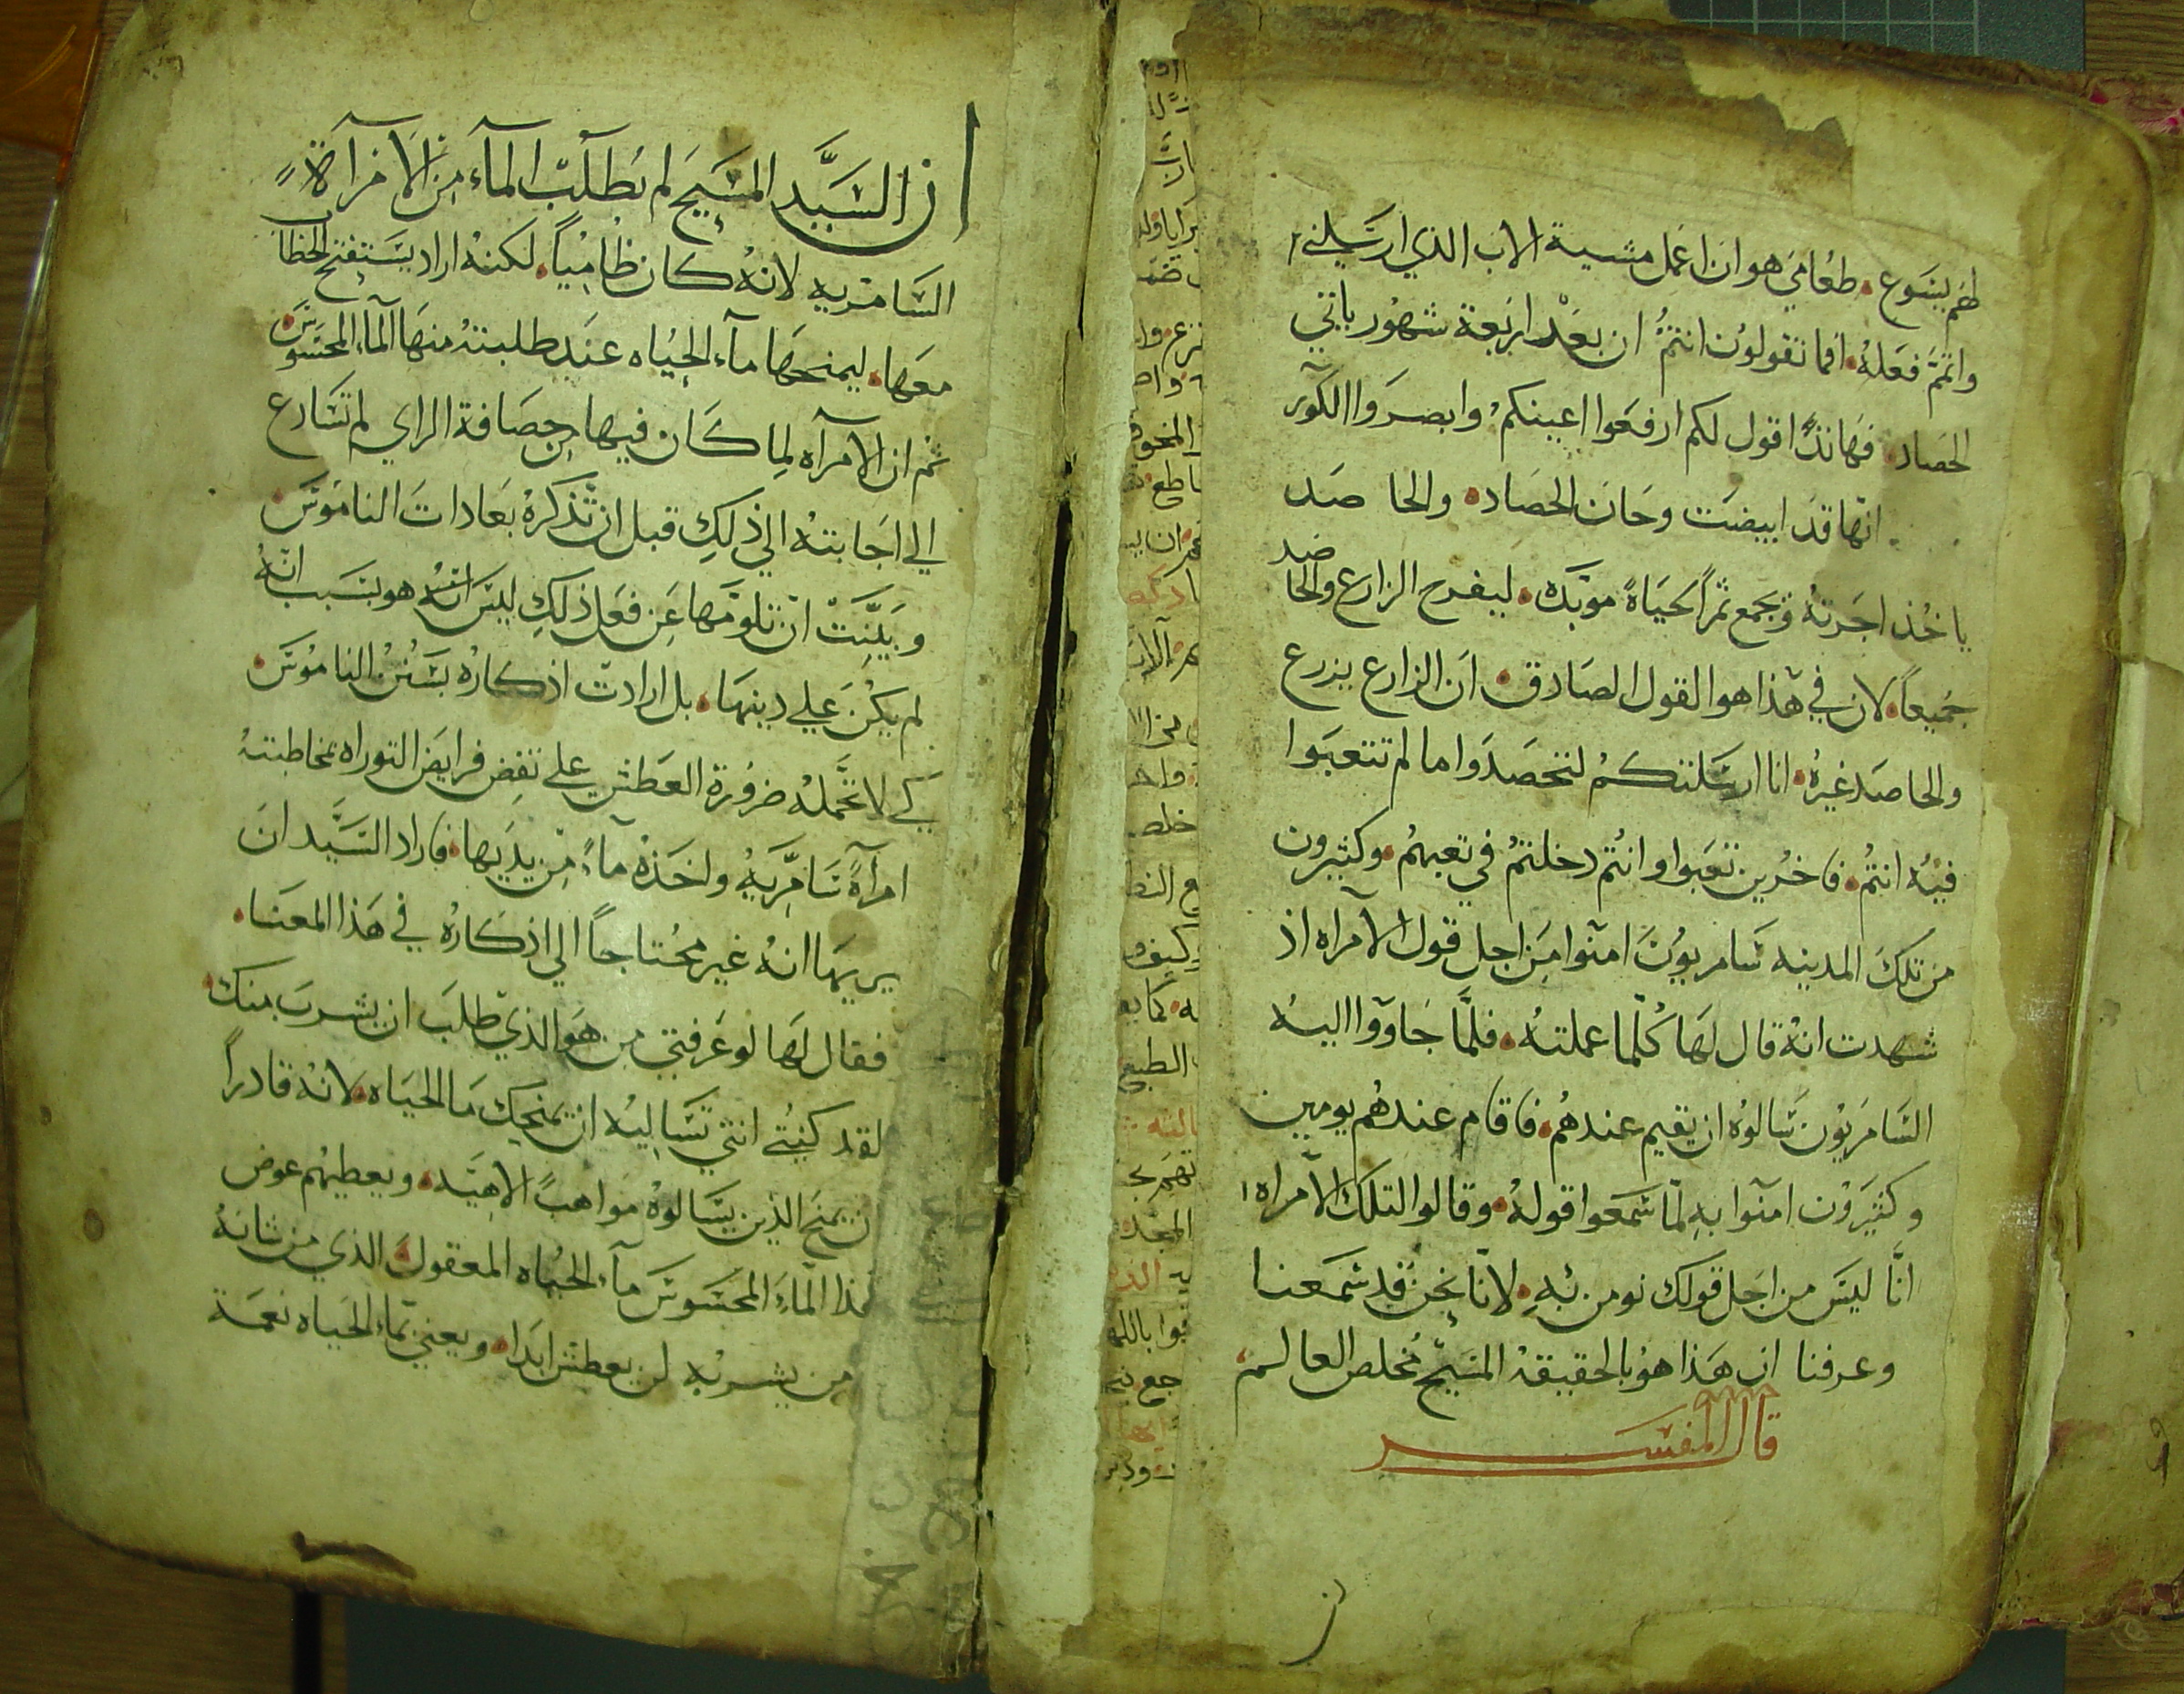 لهم يسوع. طعامي هو ان اعمل مشية الاب الذي ارسلني
واتمم فعله. افما تقولون انتم ان بعد اربعة شهور ياتي
الحصاد. فهانذا اقول لكم ارفعوا اعينكم وابصروا الكور
انها قد ابيضت وحان الحصاده والحاصد
ياخذ اجرته ويجمع ثمراً لحياة موبده. ليفرح الزارع والحاصد
جميعاً. لان في هذا هو القول الصادق. ان الزارع يزرع
والحاصد غيره. انا ارسلتكم لتحصدوا ما لم تتعبوا
فيه انتم. فاخرين تعبوا وانتم دخلتم في تعبهم. وكثيرون
من تلك المدينه سامريون امنوا من اجل قول الامراه اذ
شهدت انه قال لها كلما عملته. فلما جاووا اليه
السامريون سالوه ان يقيم عندهم. فاقام عندهم يومين
وكثيرون امنوا به لما سمعوا قوله. وقالوا لتلك الامراه
انا ليس من اجل قولك نومن به. لانا نحن قد سمعنا
وعرفنا ان هذا هو بالحقيقة المسيح مخلص العالم
قال المفسر
ان السيد المسيح لم يطلب الماء من الامرآة
السامريه لانه كان ظامياً. لكنه اراد يستفتح الخطاب
معها. ليمنحها مآء الحياه عند طلبته منها المآء المحسوس
ثم ان الامرآه لما كان فيها من حصافة الراي لم تسارع
الي اجابته الي ذلك قبل ان تذكره بعادات الناموس
وبينت ان تلومها عن فعل ذلك ليس انه هو بسبب انه
لم يكن علي دينها. بل ارادت اذكاره بسنن الناموس
كي لا تحمله ضرورة العطش علي نقض فرايض التوراه بمخاطبته
امرآة سامريه واخذه مآء من يديها. فاراد السيد ان
يريها انه غير محتاجاً الي اذكاره في هذا المعنا.
فقال لها لو عرفتي من هو الذي طلب ان يشرب منك
لقد كنتي انتي تساليه ان يمنحك ما الحياه. لانه قادراً
ان يمنح الذين يسالوه مواهب الاهيه. ويعطيهم عوض
هذا الماء المحسوس مآء الحياه المعقول الذي من شانه
من يشربه لن يعطش ابدا. ويعني بماء الحياه نعمة